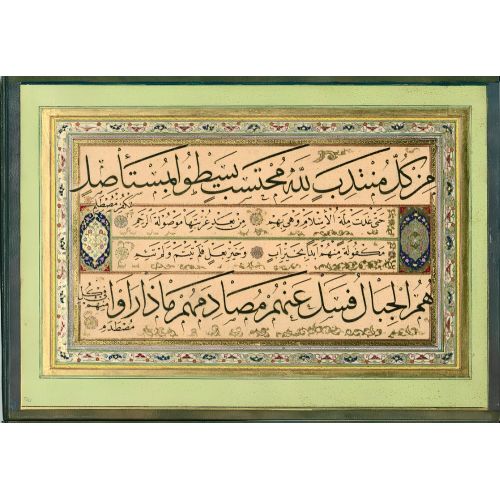 من كل منتدب لله محتسب يسطو بمستأصل للكفر مصطلم
حتى غدت ملة الاسلام وهي بهم من بعد غربتها موصولة الرحم
مكفولة منهم ابدا بخير اب وخير بعل فلم تيتم ولم تئم
هم الجبال فسل عنهم مصادمهم ماذا راوا منهم في كل مصطدم